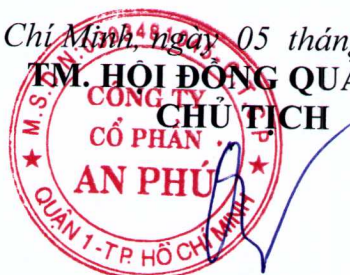 Chí Minh, ngày 05 tháng
TM. HỘI ĐỒNG QUẢ
CHỦ TỊCH
CÔNG TY
CỔ PHẦN
AN PHÚ
QUẬN 1 - T.P. HỒ CHÍ MINH